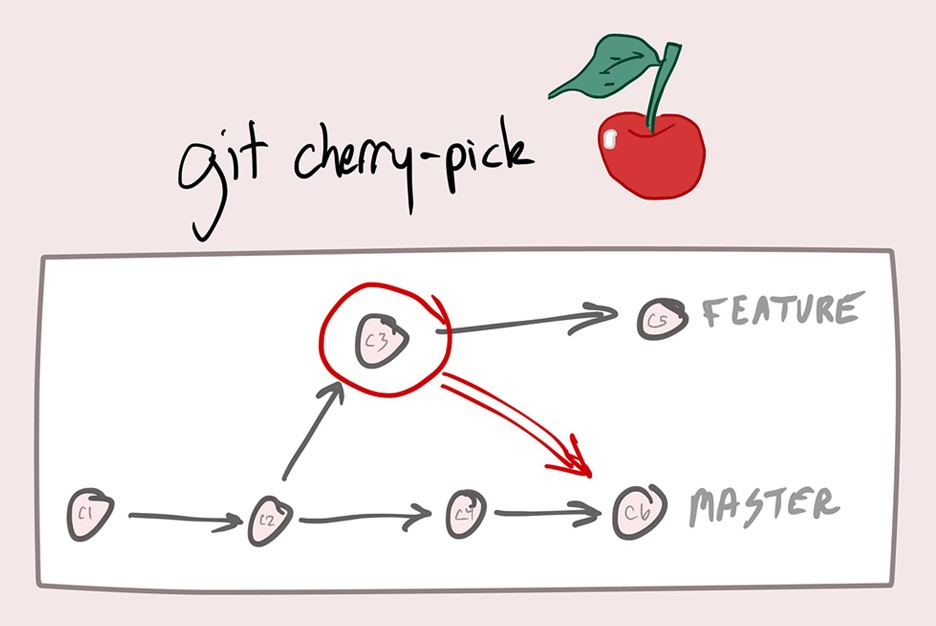 git cherry-pick
C3
C5 FEATURE
C1
C2
C4
C6 MASTER